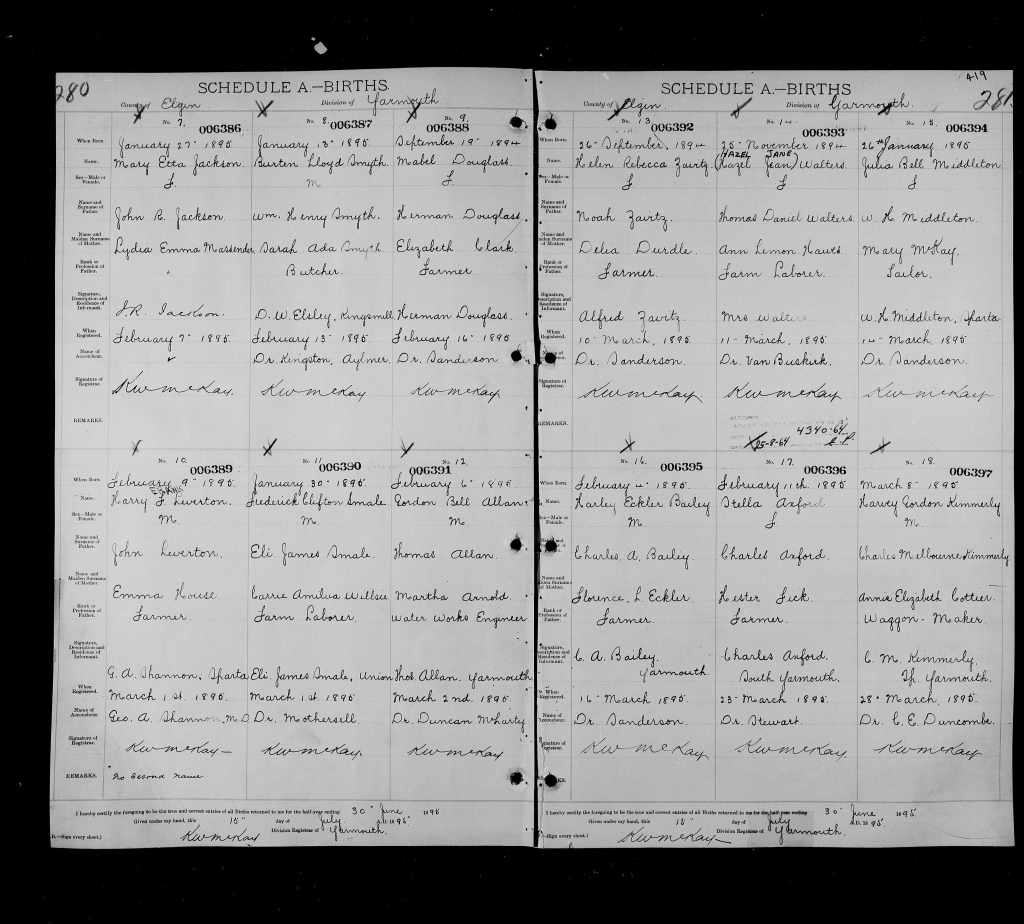 280
SCHEDULE A.—BIRTHS.
County of Elgin Division of Yarmouth
No. 7. 006386 No. 8. 006387 No. 9. 006388
When Born. January 27" 1895 January 13" 1895 September 19" 1894
Name. Mary Etta Jackson. Burten Lloyd Smyth. Mabel Douglass.
Sex—Male or Female. F. M F
Name and Surname of Father. John R. Jackson. Wm. Henry Smyth. Herman Douglass
Name and Maiden Surname of Mother. Lydia Emma Sarah Ada Smyth Elizabeth Clark
Rank or Profession of Father. " Butcher. Farmer
Signature, Description and Residence of Informant. J.R. Jackson. D. W. Elsley, Kingsmill. Herman Douglass.
When Registered. February 7" 1895. February 13" 1895 February 16" 1895
Name of Accoucheur. Dr. Kingston, Aylmer. Dr. Sanderson
Signature of Registrar. KW McKay. KW McKay KW McKay
REMARKS.
No. 10. 006389 No. 11. 006390 No. 12. 006391
When Born. February 9" 1895. January 30" 1895. February 6" 1895.
Name. Harry F Leverton. Frederick Clifton Smale. Gordon Bell Allan
Sex—Male or Female. M. M. M
Name and Surname of Father. John Leverton. Eli James Smale. Thomas Allan.
Name and Maiden Surname of Mother. Emma House Carrie Willsee Martha Arnold
Rank or Profession of Father. Farmer. Farm Laborer. Water Works Engineer
Signature, Description and Residence of Informant. G. A. Shannon, Sparta Eli James Smale, Union Thos. Allan. Yarmouth
When Registered. March 1st 1895. March 1st 1895 March 2nd. 1895.
Name of Accoucheur. Geo. A. Shannon, M.D Dr. Mothersell Dr. Duncan
Signature of Registrar. KW McKay— KW McKay. KW McKay
REMARKS. No second name
I hereby certify the foregoing to be the true and correct entries of all Births returned to me for the half-year ending 30" June 1895
Given under my hand, this 15" day of July A.D. 1895
KW McKay Division Registrar of Yarmouth.
419
281
SCHEDULE A.—BIRTHS
County of Elgin. Division of Yarmouth.
No. 13. 006392 No. 14. 006393 No. 15. 006394
When Born. 26" September, 1894 25" November 1894 26th January 1895
HAZEL JANE
Name. Helen Rebecca Zavitz. (Hazel Jean) Walters. Julia Bell Middleton
Sex—Male or Female. F F F
Name and Surname of Father. Noah Zavitz. Thomas Daniel Walters. W. H. Middleton.
Name and Maiden Surname of Mother. Delia Durdle. Ann Limon Mary McKay.
Rank or Profession of Father. Farmer. Farm Laborer. Tailor.
Signature, Description and Residence of Informant. Alfred Zavitz. Mrs Walters W. H. Middleton, Sparta
When Registered. 10" March, 1895 11" March, 1895 14" March 1895
Name of Accoucheur. Dr. Sanderson. Dr. Van Buskirk. Dr. Sanderson.
Signature of Registrar. KW McKay. KW McKay. KW McKay
REMARKS. 4340-64
25-8-64
No. 16. 006395 No. 17. 006396 No. 18. 006397
When Born. February 4" 1895 February 11th 1895 March 8" 1895
Name. Harley Eckler Bailey Stella Axford Harvey Gordon Kimmerly
Sex—Male or Female. M F M
Name and Surname of Father. Charles. A. Bailey. Charles Axford. Charles Melbourne Kimmerly
Name and Maiden Surname of Mother. Florence. L Eckler. Hester Feck. Annie Elizabeth Cottier.
Rank or Profession of Father. Farmer. Farmer. Waggon-Maker.
Signature, Description and Residence of Informant. C. A. Bailey. Yarmouth Charles Axford. South Yarmouth. C. M. Kimmerly, Yarmouth.
When Registered. 16" March 1895. 23" March 1895 28" March, 1895.
Name of Accoucheur. Dr. Sanderson Dr. Stewart. Dr. C. E. Duncombe.
Signature of Registrar. KW McKay KW McKay. KW McKay
REMARKS.
I hereby certify the foregoing to be the true and correct entries of all Births returned to me for the half-year ending 30" June 1895
Given under my hand, this 15" day of July A.D. 1895
—Sign every sheet.) KW McKay— Division Registrar of Yarmouth.